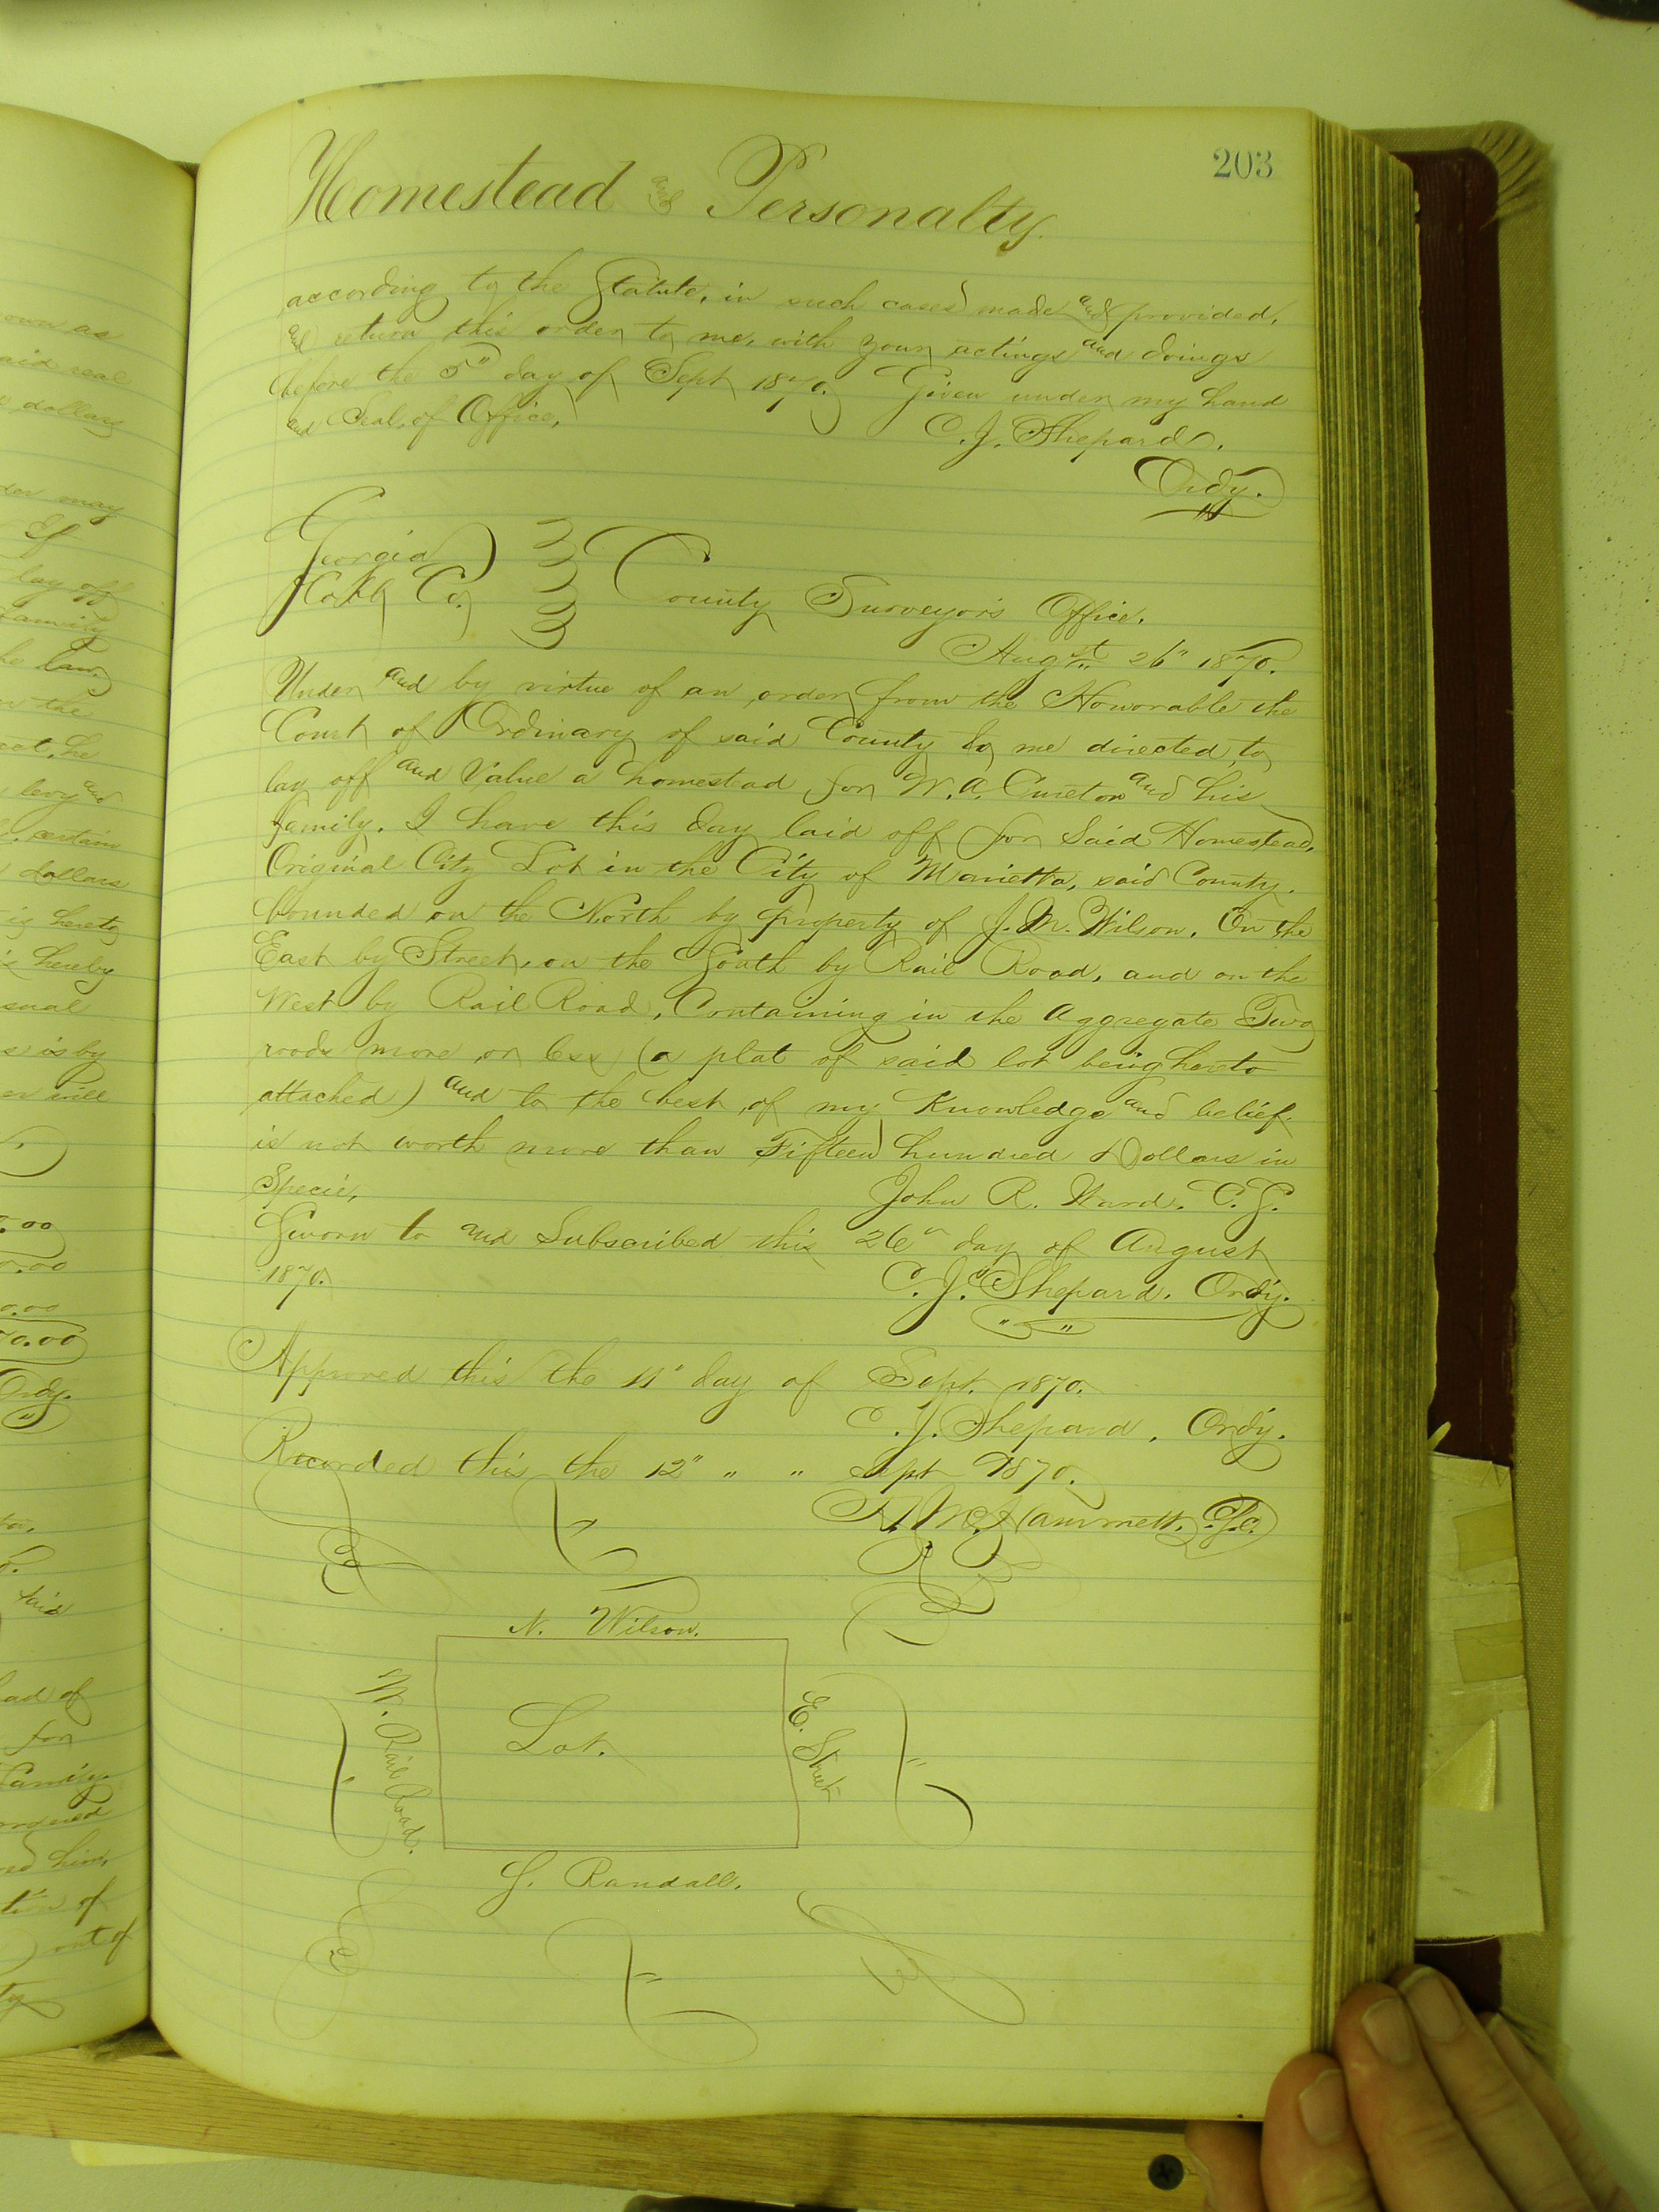 203
Homestead and Personalty.
according to the Statute, in such cases made and provided,
and return this order to me, with your actings and doings
before the 5" day of Sept 1870. Given under my hand
and Seal, of Office,
C. J. Shepard.
Ordy.
Georgia
Cobb Co.
County Surveyor's Office.
Augst 26" 1870.
Under and by virtue of an order from the Honorable the
Court of Ordinary of said County to me directed, to
lay off and Value a homestead for W. A. Cureton and his
family. I have this day laid off for Said Homestead,
Original City Lot in the City of Marietta, said County.
bounded on the North by property of J. M. Wilson. On the
East by Street, on the South by Rail Road, and on the
West by Rail Road, Containing in the Aggregate Two
roods more or less (a plat of said lot being hereto
attached) and to the best of my Knowledge and belief.
is not worth more than Fifteen hundred Dollars in
Specie,
John R. Ward. C. S.
Sworn to and Subscribed this 26" day of August
1870.
C. J. Shepard. Ordy.
Approved this the 11" day of Sept. 1870.
C. J. Shepard, Ordy.
Recorded this the 12" " " Sept 1870.
Hammett,
N. Wilson.
W. Rail Road.
Lot.
E. Street
S. Randall.
own as
said real
dollars
may
If
lay off
family
he law,
the
he
levy and
certain
dollars
is hereto
hereby
is by
will
70.00
Ordy.
said
of
for
family
him,
of
out of